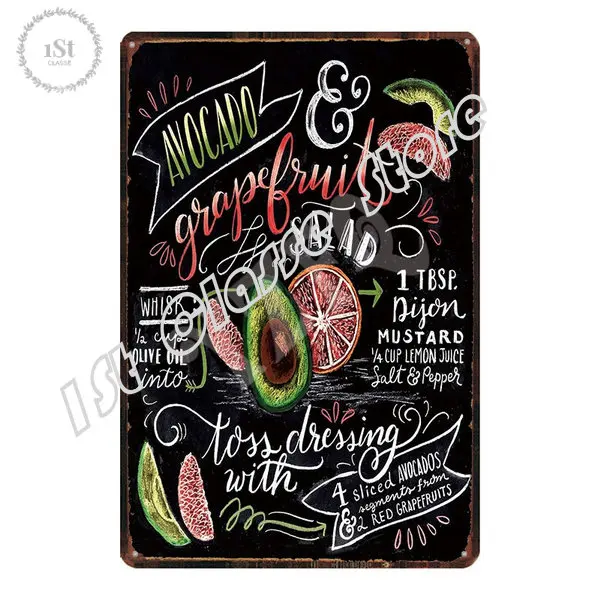 1St
CLASSE
AVOCADO
&
grapefruit
SALAD
WHISK
½ cup
OLIVE OIL
into
1 TBSP.
Dijon
MUSTARD
¼ CUP LEMON JUICE
Salt & Pepper
toss dressing
with
4 sliced AVOCADOS
& segments from
2 RED GRAPEFRUITS
1St Classe Store